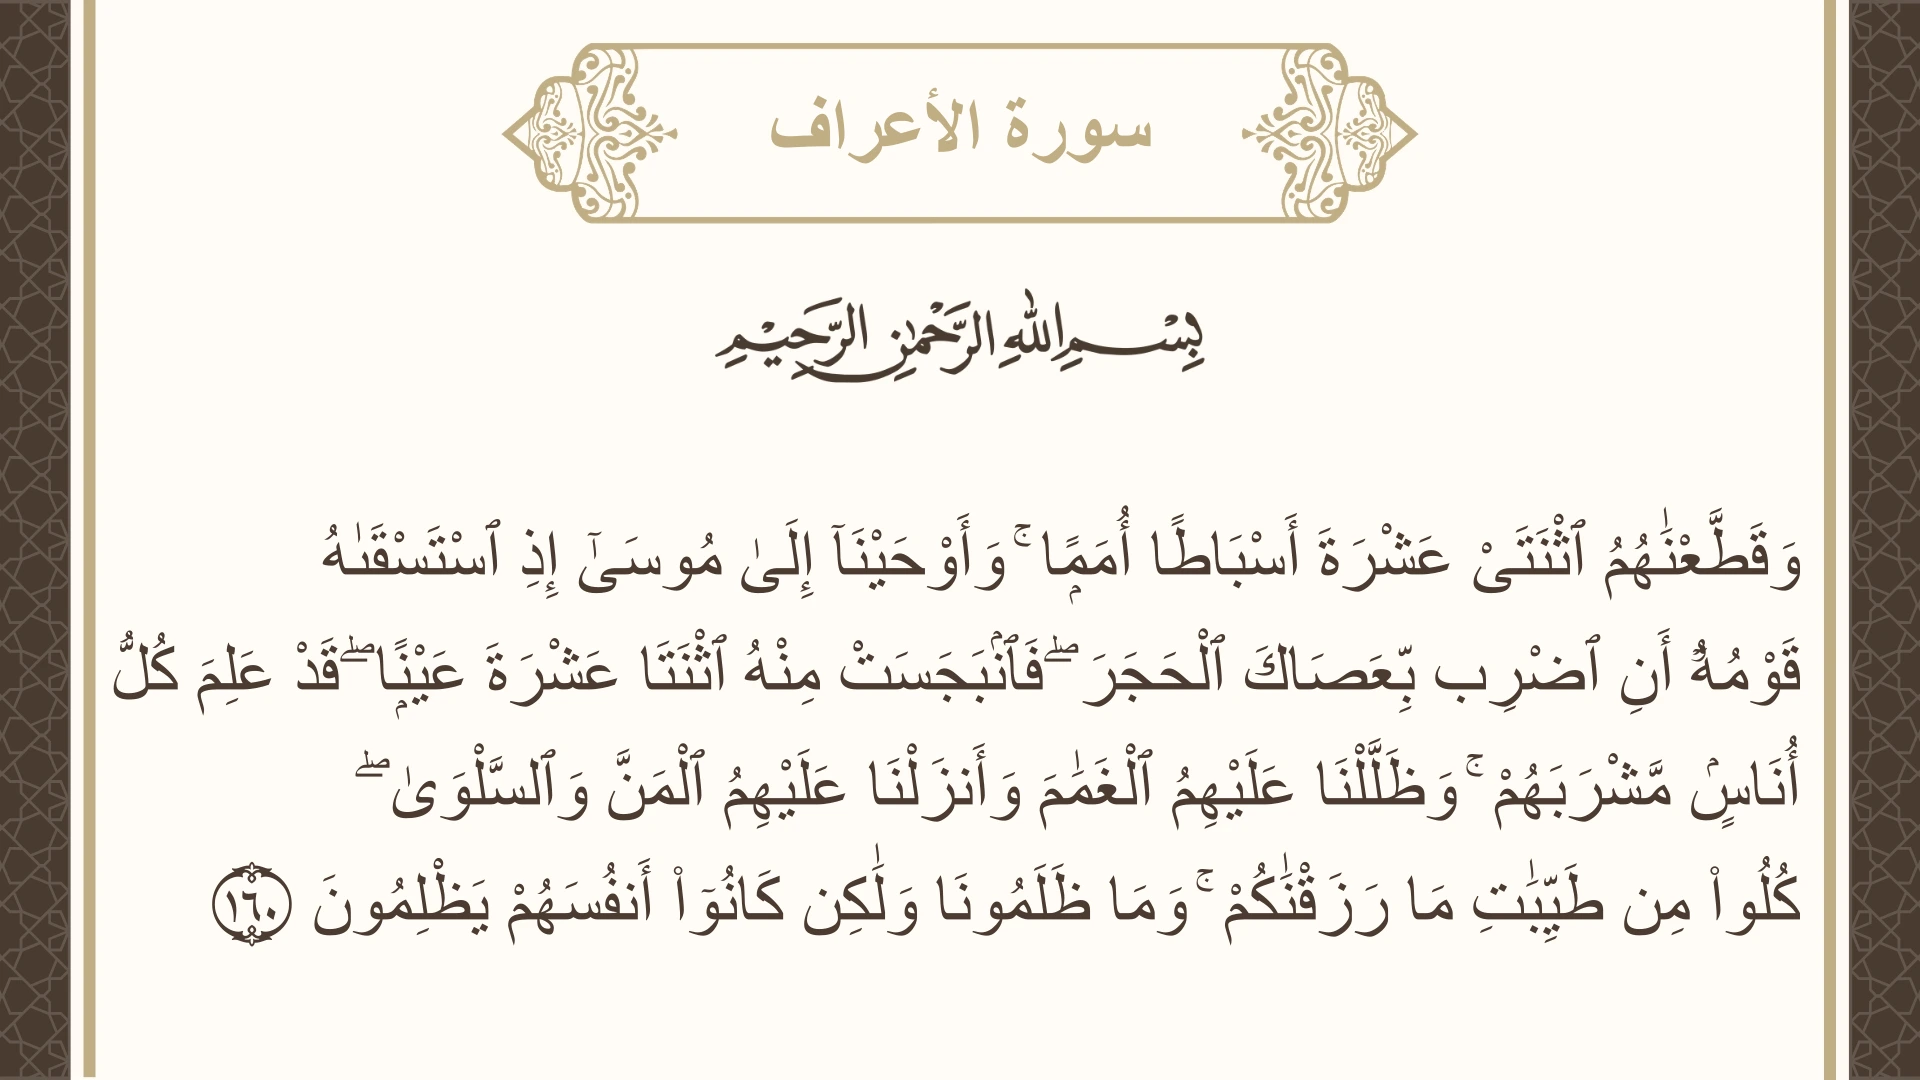 سورة الأعراف
بِسْمِ اللهِ الرَّحْمٰنِ الرَّحِيْمِ
وَقَطَّعْنَٰهُمُ ٱثْنَتَىْ عَشْرَةَ أَسْبَاطًا أُمَمًۭا ۚ وَأَوْحَيْنَآ إِلَىٰ مُوسَىٰٓ إِذِ ٱسْتَسْقَىٰهُ
قَوْمُهُۥٓ أَنِ ٱضْرِب بِّعَصَاكَ ٱلْحَجَرَ ۖ فَٱنۢبَجَسَتْ مِنْهُ ٱثْنَتَا عَشْرَةَ عَيْنًۭا ۖ قَدْ عَلِمَ كُلُّ
أُنَاسٍۢ مَّشْرَبَهُمْ ۚ وَظَلَّلْنَا عَلَيْهِمُ ٱلْغَمَٰمَ وَأَنزَلْنَا عَلَيْهِمُ ٱلْمَنَّ وَٱلسَّلْوَىٰ ۖ
كُلُوا۟ مِن طَيِّبَٰتِ مَا رَزَقْنَٰكُمْ ۚ وَمَا ظَلَمُونَا وَلَٰكِن كَانُوٓا۟ أَنفُسَهُمْ يَظْلِمُونَ ١٦٠